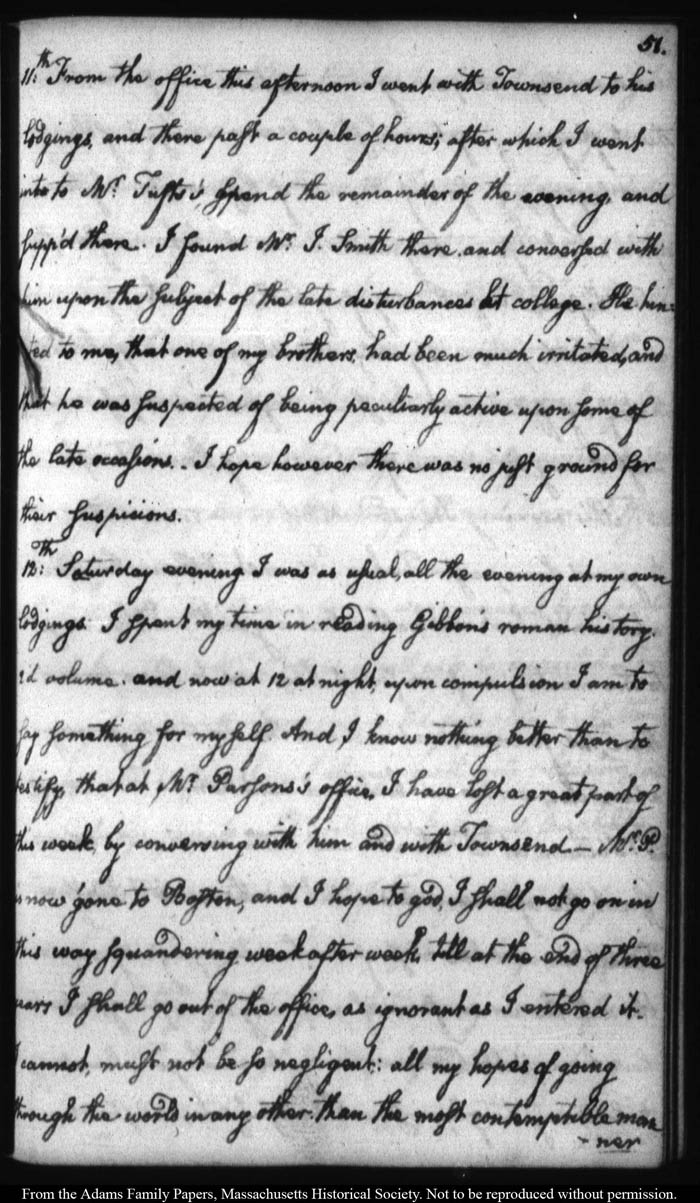 51.
11:th From the office this afternoon I went with Townsend to his
lodgings, and there past a couple of hours; after which I went
into to Mr. Tufts's, spend the remainder of the evening, and
supp'd there. I found Mr. J. Smith there, and conversed with
him upon the subject of the late disturbances at college. He hin=
ted to me, that one of my brothers, had been much irritated, and
that he was suspected of being peculiarly active upon some of
the late occasions. - I hope however there was no just ground for
their suspicions.
12:th Saturday evening I was as usual, all the evening at my own
lodgings. I spent my time in reading Gibbons roman history.
2'd volume. and now at 12 at night, upon compulsion I am to
say something for myself. And I know nothing better than to
testify, that at Mr. Parsons's office, I have lost a great part of
this week, by conversing with him and with Townsend — Mr. P.
is now gone to Boston, and I hope to god, I shall not go on in
this way squandering week after week, till at the end of three
years I shall go out of the office, as ignorant as I entered it.
I cannot, must not be so negligent: all my hopes of going
through the world in any other than the most contemptible man
-ner
From the Adams Family Papers, Massachusetts Historical Society. Not to be reproduced without permission.